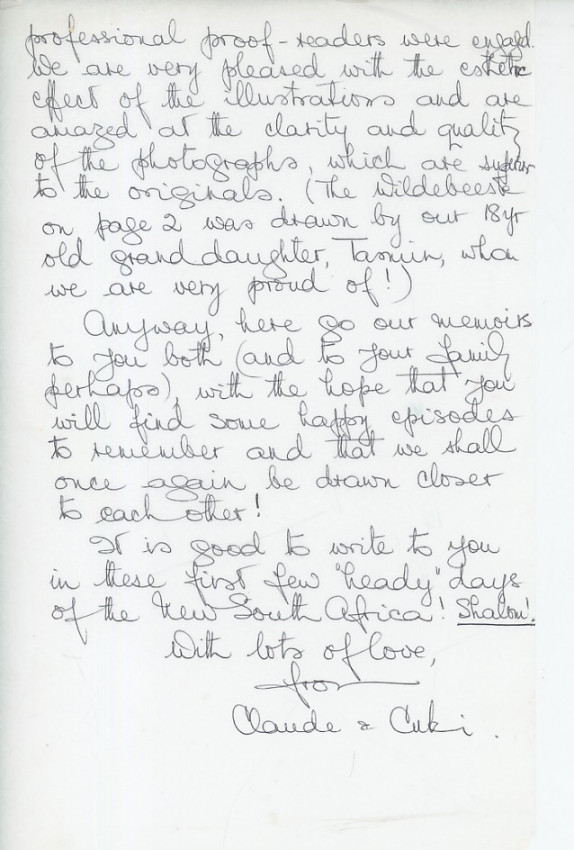 professional proof-readers were engaged.
We are very pleased with the esthetic
effect of the illustrations and are
amazed at the clarity and quality
of the photographs, which are superior
to the originals. (The Wildebeeste
on page 2 was drawn by our 18 yr
old granddaughter, Tasmin, whom
we are very proud of!)
Anyway, here go our memoirs
to you both (and to your family
perhaps), with the hope that you
will find some happy episodes
to remember and that we shall
once again be drawn closer
to each other!
It is good to write to you
in these first few "heady" days
of the New South Africa! Shalom!
With lots of love,
from
Claude & Cuki.